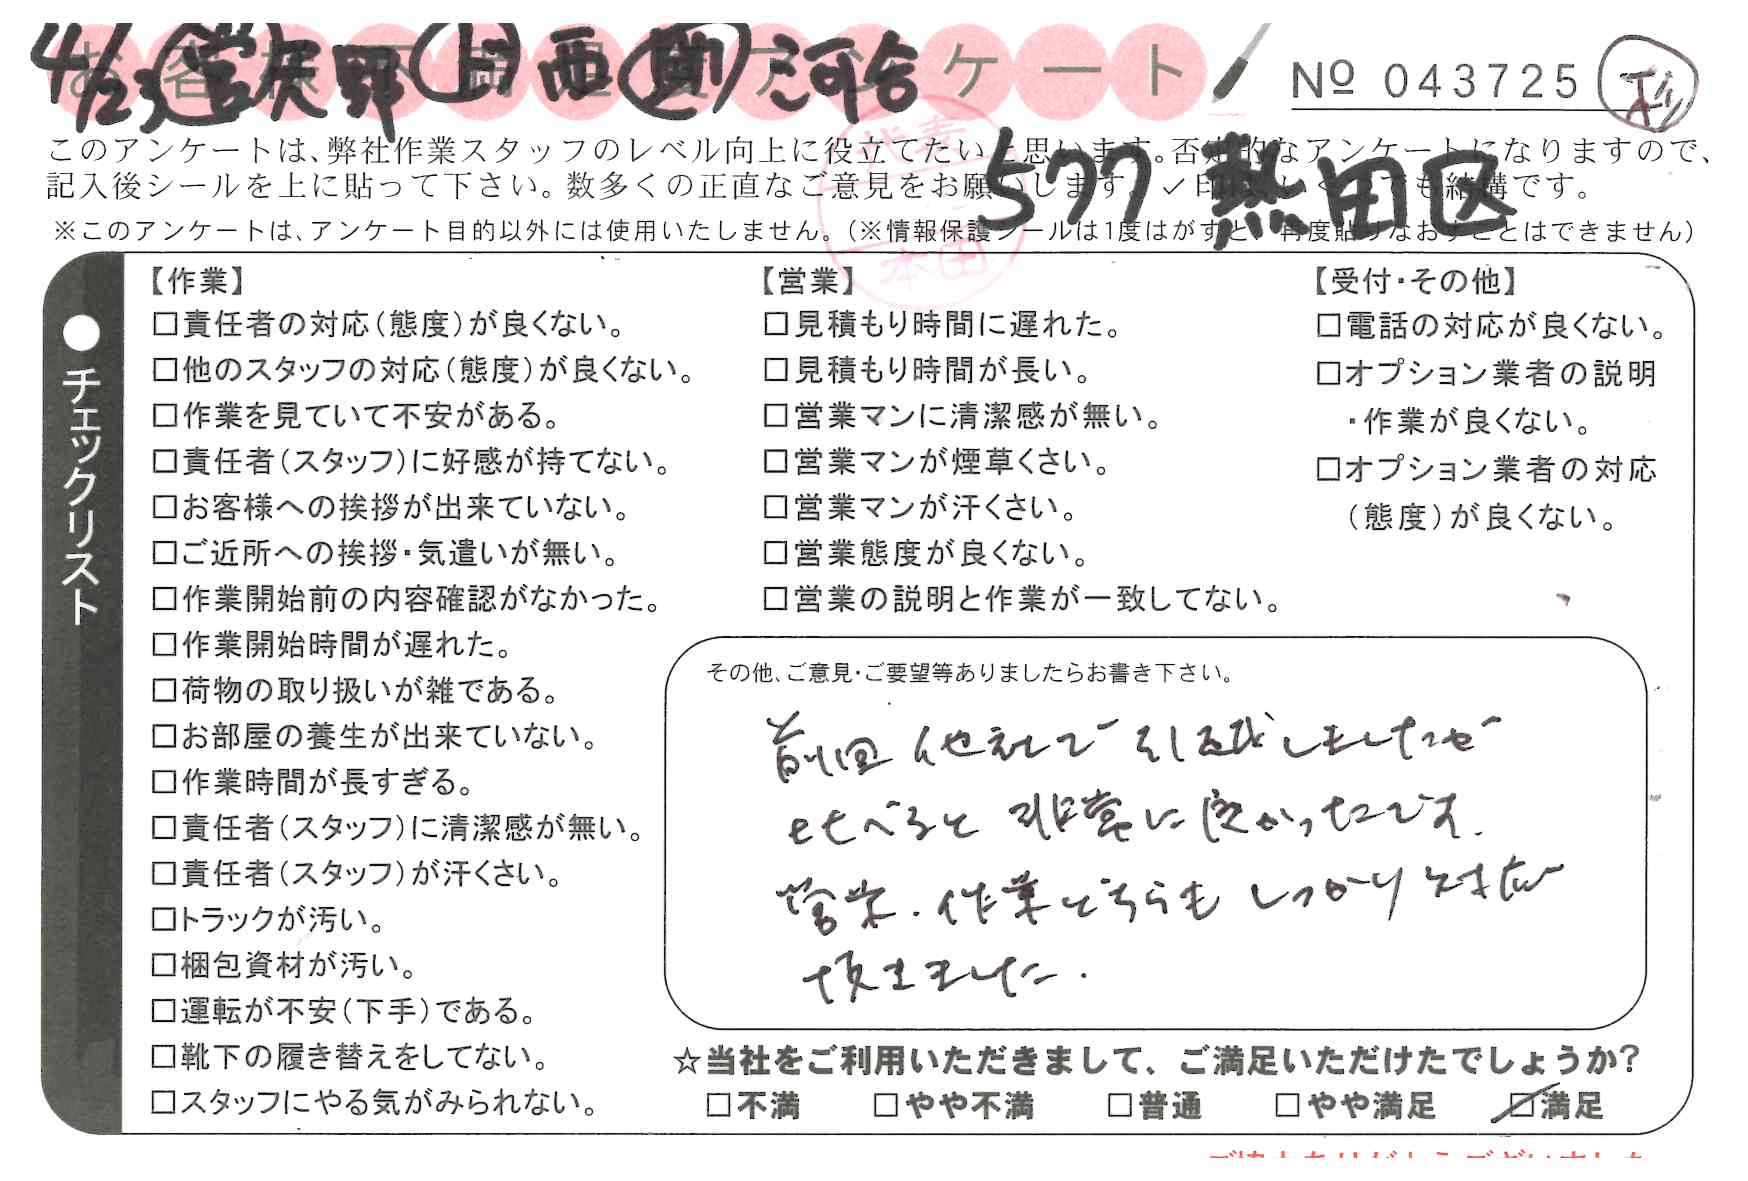 お客様不満足度アンケート
4/23 営 矢野 上 西 助 河合
№ 043725
杉
577 熱田区
このアンケートは、弊社作業スタッフのレベル向上に役立てたいと思います。否定的なアンケートになりますので、
記入後シールを上に貼って下さい。数多くの正直なご意見をお願いします。✓印はいくつでも結構です。
※このアンケートは、アンケート目的以外には使用いたしません。(※情報保護シールは1度はがすと、再度貼りなおすことはできません)
代表
本田
●チェックリスト
【作業】
□責任者の対応(態度)が良くない。
□他のスタッフの対応(態度)が良くない。
□作業を見ていて不安がある。
□責任者(スタッフ)に好感が持てない。
□お客様への挨拶が出来ていない。
□ご近所への挨拶・気遣いが無い。
□作業開始前の内容確認がなかった。
□作業開始時間が遅れた。
□荷物の取り扱いが雑である。
□お部屋の養生が出来ていない。
□作業時間が長すぎる。
□責任者(スタッフ)に清潔感が無い。
□責任者(スタッフ)が汗くさい。
□トラックが汚い。
□梱包資材が汚い。
□運転が不安(下手)である。
□靴下の履き替えをしてない。
□スタッフにやる気がみられない。
【営業】
□見積もり時間に遅れた。
□見積もり時間が長い。
□営業マンに清潔感が無い。
□営業マンが煙草くさい。
□営業マンが汗くさい。
□営業態度が良くない。
□営業の説明と作業が一致してない。
【受付・その他】
□電話の対応が良くない。
□オプション業者の説明
・作業が良くない。
□オプション業者の対応
(態度)が良くない。
その他、ご意見・ご要望等ありましたらお書き下さい。
前回 他社で 引越しましたが
比べると 非常に良かったです.
営業・作業どちらも しっかり 対応
頂きました.
☆当社をご利用いただきまして、ご満足いただけたでしょうか?
□不満 □やや不満 □普通 □やや満足 ☑満足
ご協力ありがとうございました